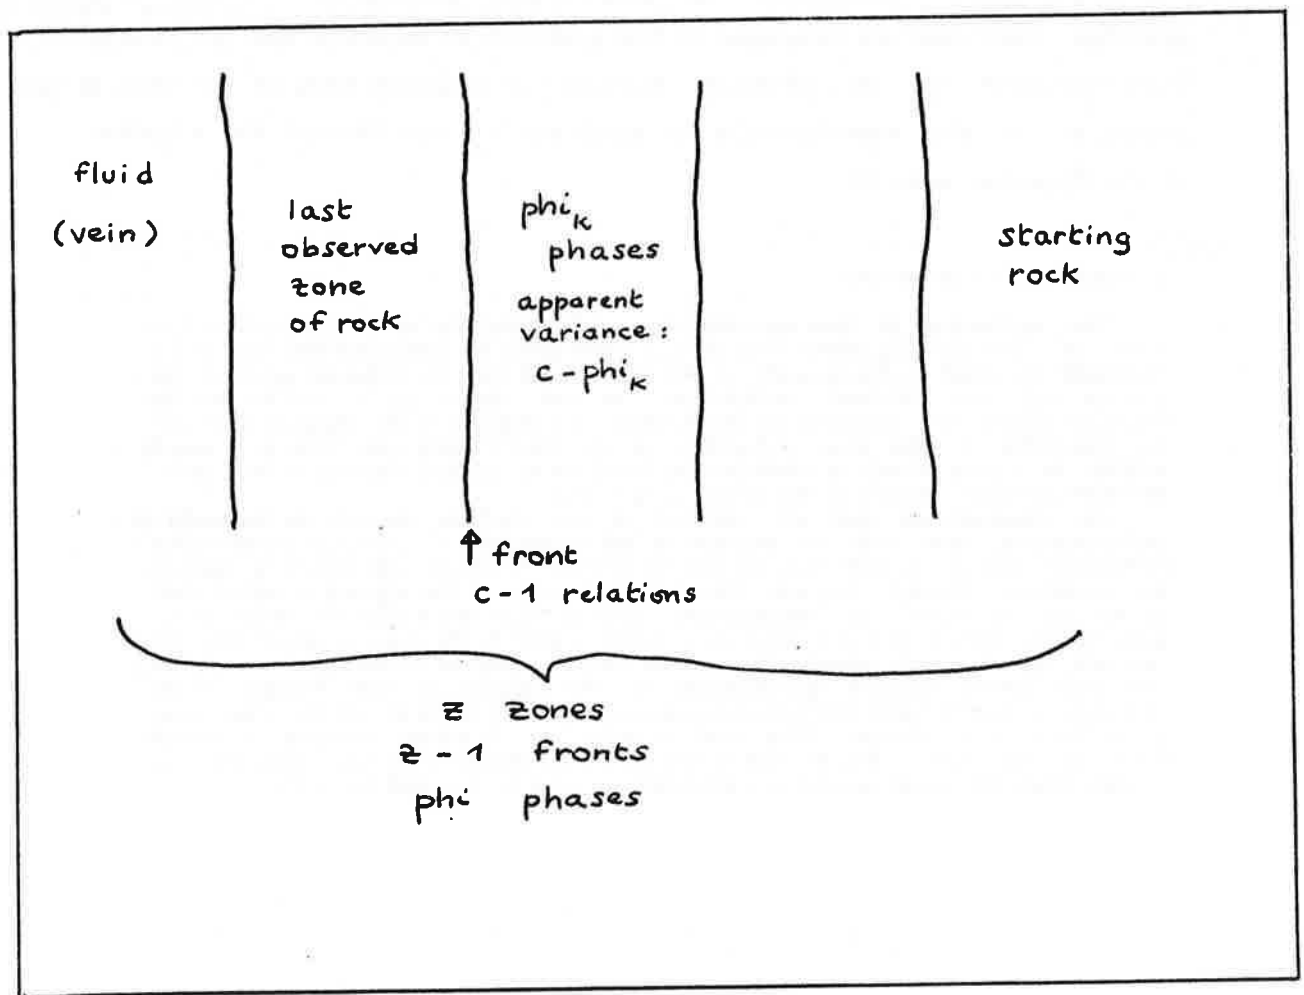 fluid
(vein)
last
observed
zone
of rock
phi_k
phases
apparent
variance:
c - phi_k
starting
rock
↑ front
c - 1 relations
z zones
z - 1 fronts
phi phases